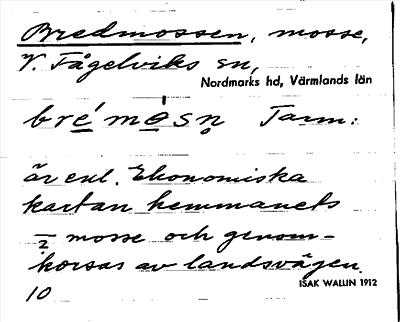 Bredmossen, mosse,
V. Fågelviks sn,
Nordmarks hd, Värmlands län
bre´ mo̱sn̥ Tarm:
är enl. Ekonomiska
kartan hemmanets
mosse och genom-
korsas av landsvägen.
ISAK WALLIN 1912
10